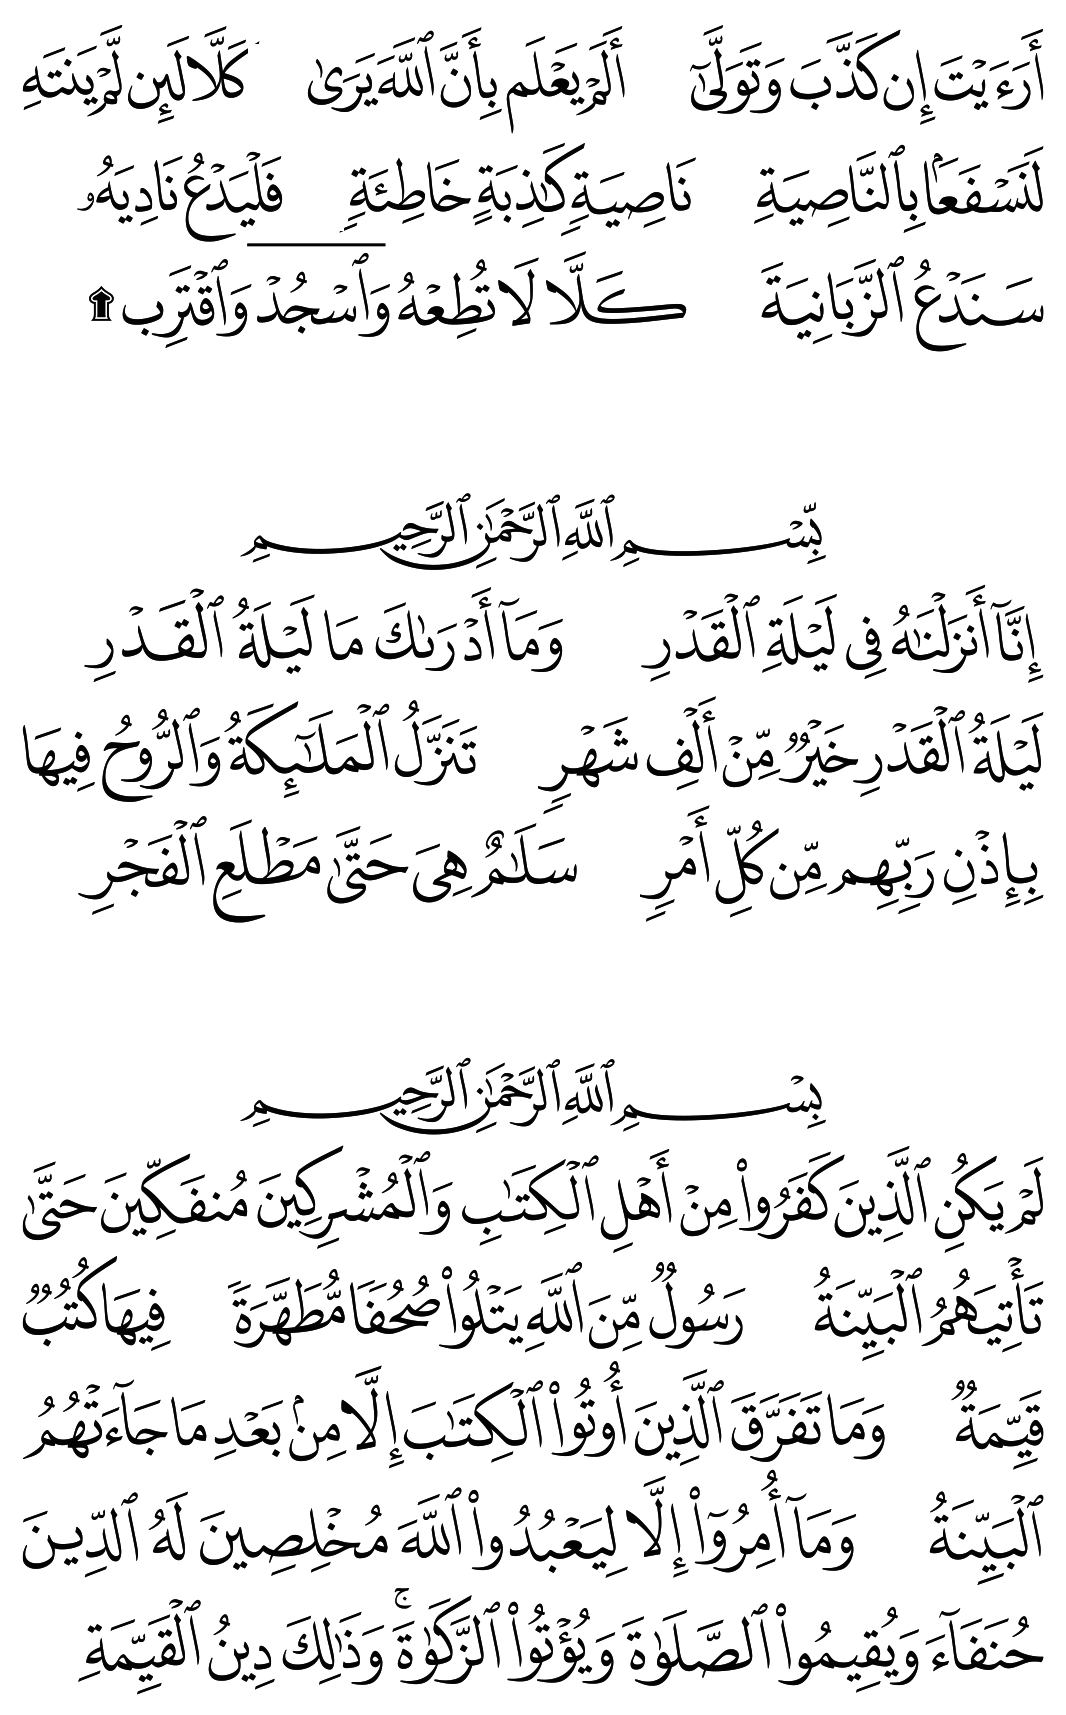 أَرَءَيۡتَ إِن كَذَّبَ وَتَوَلَّىٰٓ أَلَمۡ يَعۡلَم بِأَنَّ ٱللَّهَ يَرَىٰ كَلَّا لَئِن لَّمۡ يَنتَهِ
لَنَسۡفَعَۢا بِٱلنَّاصِيَةِ نَاصِيَةٖ كَٰذِبَةٍ خَاطِئَةٖ فَلۡيَدۡعُ نَادِيَهُۥ
سَنَدۡعُ ٱلزَّبَانِيَةَ كَلَّا لَا تُطِعۡهُ وَٱسۡجُدۡۤ وَٱقۡتَرِب ۩
بِّسۡمِ ٱللَّهِ ٱلرَّحۡمَٰنِ ٱلرَّحِيمِ
إِنَّآ أَنزَلۡنَٰهُ فِي لَيۡلَةِ ٱلۡقَدۡرِ وَمَآ أَدۡرَىٰكَ مَا لَيۡلَةُ ٱلۡقَدۡرِ
لَيۡلَةُ ٱلۡقَدۡرِ خَيۡرٞ مِّنۡ أَلۡفِ شَهۡرٖ تَنَزَّلُ ٱلۡمَلَٰٓئِكَةُ وَٱلرُّوحُ فِيهَا
بِإِذۡنِ رَبِّهِم مِّن كُلِّ أَمۡرٖ سَلَٰمٌ هِيَ حَتَّىٰ مَطۡلَعِ ٱلۡفَجۡرِ
بِسۡمِ ٱللَّهِ ٱلرَّحۡمَٰنِ ٱلرَّحِيمِ
لَمۡ يَكُنِ ٱلَّذِينَ كَفَرُواْ مِنۡ أَهۡلِ ٱلۡكِتَٰبِ وَٱلۡمُشۡرِكِينَ مُنفَكِّينَ حَتَّىٰ
تَأۡتِيَهُمُ ٱلۡبَيِّنَةُ رَسُولٞ مِّنَ ٱللَّهِ يَتۡلُواْ صُحُفٗا مُّطَهَّرَةٗ فِيهَا كُتُبٞ
قَيِّمَةٞ وَمَا تَفَرَّقَ ٱلَّذِينَ أُوتُواْ ٱلۡكِتَٰبَ إِلَّا مِنۢ بَعۡدِ مَا جَآءَتۡهُمُ
ٱلۡبَيِّنَةُ وَمَآ أُمِرُوٓاْ إِلَّا لِيَعۡبُدُواْ ٱللَّهَ مُخۡلِصِينَ لَهُ ٱلدِّينَ
حُنَفَآءَ وَيُقِيمُواْ ٱلصَّلَوٰةَ وَيُؤۡتُواْ ٱلزَّكَوٰةَۚ وَذَٰلِكَ دِينُ ٱلۡقَيِّمَةِ